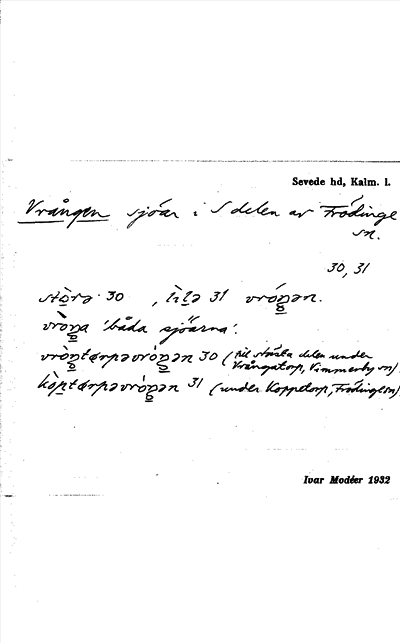 Sevede hd, Kalm. l.
Vrången sjöar i S delen av Frödinge
sn.
30, 31
stòrə 30 , lìlə 31 vróŋən.
vròŋa 'båda sjöarna'.
30 (till största delen under
Vrångatorp, Vimmerby sn)
31 (under Koppetorp, Frödinge sn)
Ivar Modéer 1932